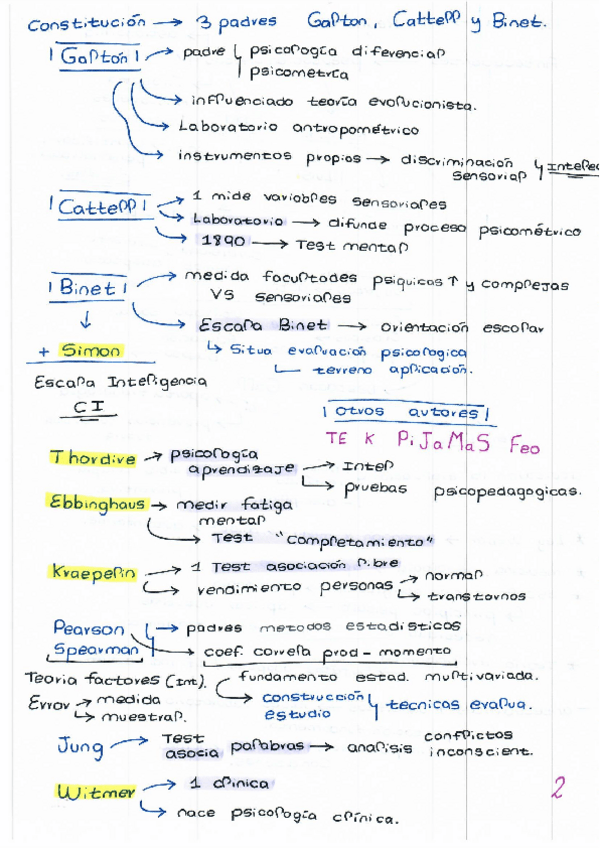 Constitución → 3 padres Galton, Cattell y Binet.
Galton → padre psicología diferencial
psicometría
→ influenciado teoría evolucionista.
→ Laboratorio antropométrico
→ instrumentos propios → discriminación sensorial y Intelec
Cattell → 1 mide variables sensoriales
→ Laboratorio → difunde proceso psicométrico
→ 1890 → Test mental
Binet → medida facultades psíquicas ↑ y complejas
VS sensoriales
→ Escala Binet → orientación escolar
↳ Situa evaluación psicologica
terreno aplicación.
+ Simon
Escala Inteligencia
CI
otros autores
TE K PiJaMaS Feo
Thordive → psicología
aprendizaje → Intel
→ pruebas psicopedagogicas.
Ebbinghaus → medir fatiga
mental
→ Test "Completamiento"
Kraepelin → 1 Test asociación libre
→ rendimiento personas → normal
→ transtornos
Pearson → padres metodos estadísticos
Spearman → coef. correla prod-momento
Teoria factores (Int). fundamento estad. multivariada.
Error → medida → construcción
estudio técnicas evalua.
↳ muestral.
Jung → Test
asocia palabras → analisis conflictos
inconscient.
Witmer → 1 clinica
→ nace psicología clínica.
2